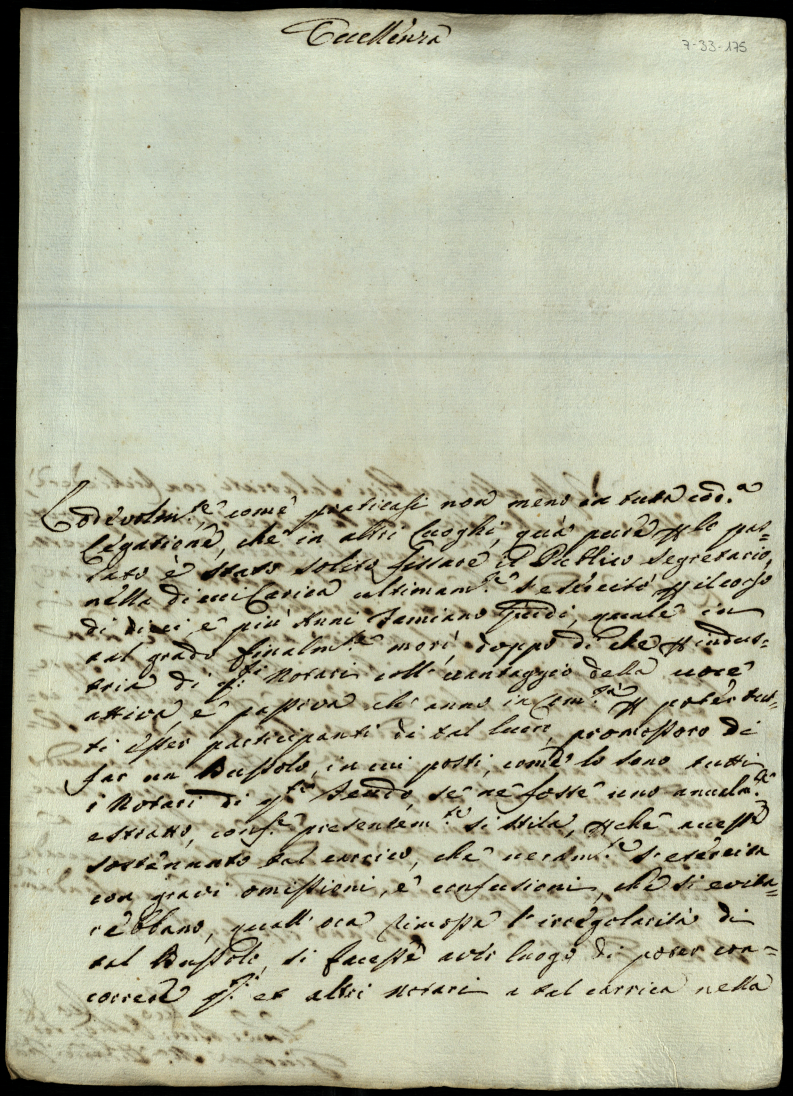 Eccellenza
7-33-175
Lodevolm.te, come praticasi non meno in tutta cod.a
Legatione, che in altri Luoghi, quà pure p lo pas-
sato è stato solito fissare il Publico Segretario,
nella di cui Carica ultimam.te s'esercitò p il corso
di dieci, e più Anni Damiano Guidi, quale in
tal grado finalm.te morì, doppo di che p indus-
tria di q.ti Notari coll' vantaggio della voce
attiva e passiva ch' anno in Com.tà p poter tut-
ti esser participanti di tal lucri, promossero di
far un Bussolo, in cui posti, come lo sono tutti
i Notari di q.to feudo, se ne fosse uno anualm.te
estratto, conf.e presentem.te si stila, p che avesse
sostennuto tal carico, che veram.te si esercita
con gravi omissioni, e confusioni, che si evita-
rebbano, quall' ora rimossa l'irregolarità di
tal Bussolo, si facesse
luogo di poter con-
correre q.ti et altri Notari a tal carrica nella